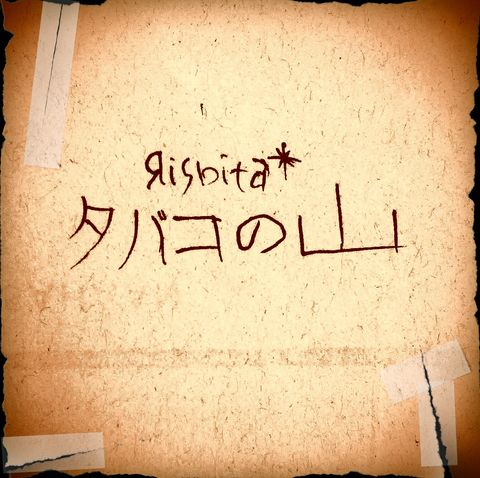 Яisнita*
タバコの山